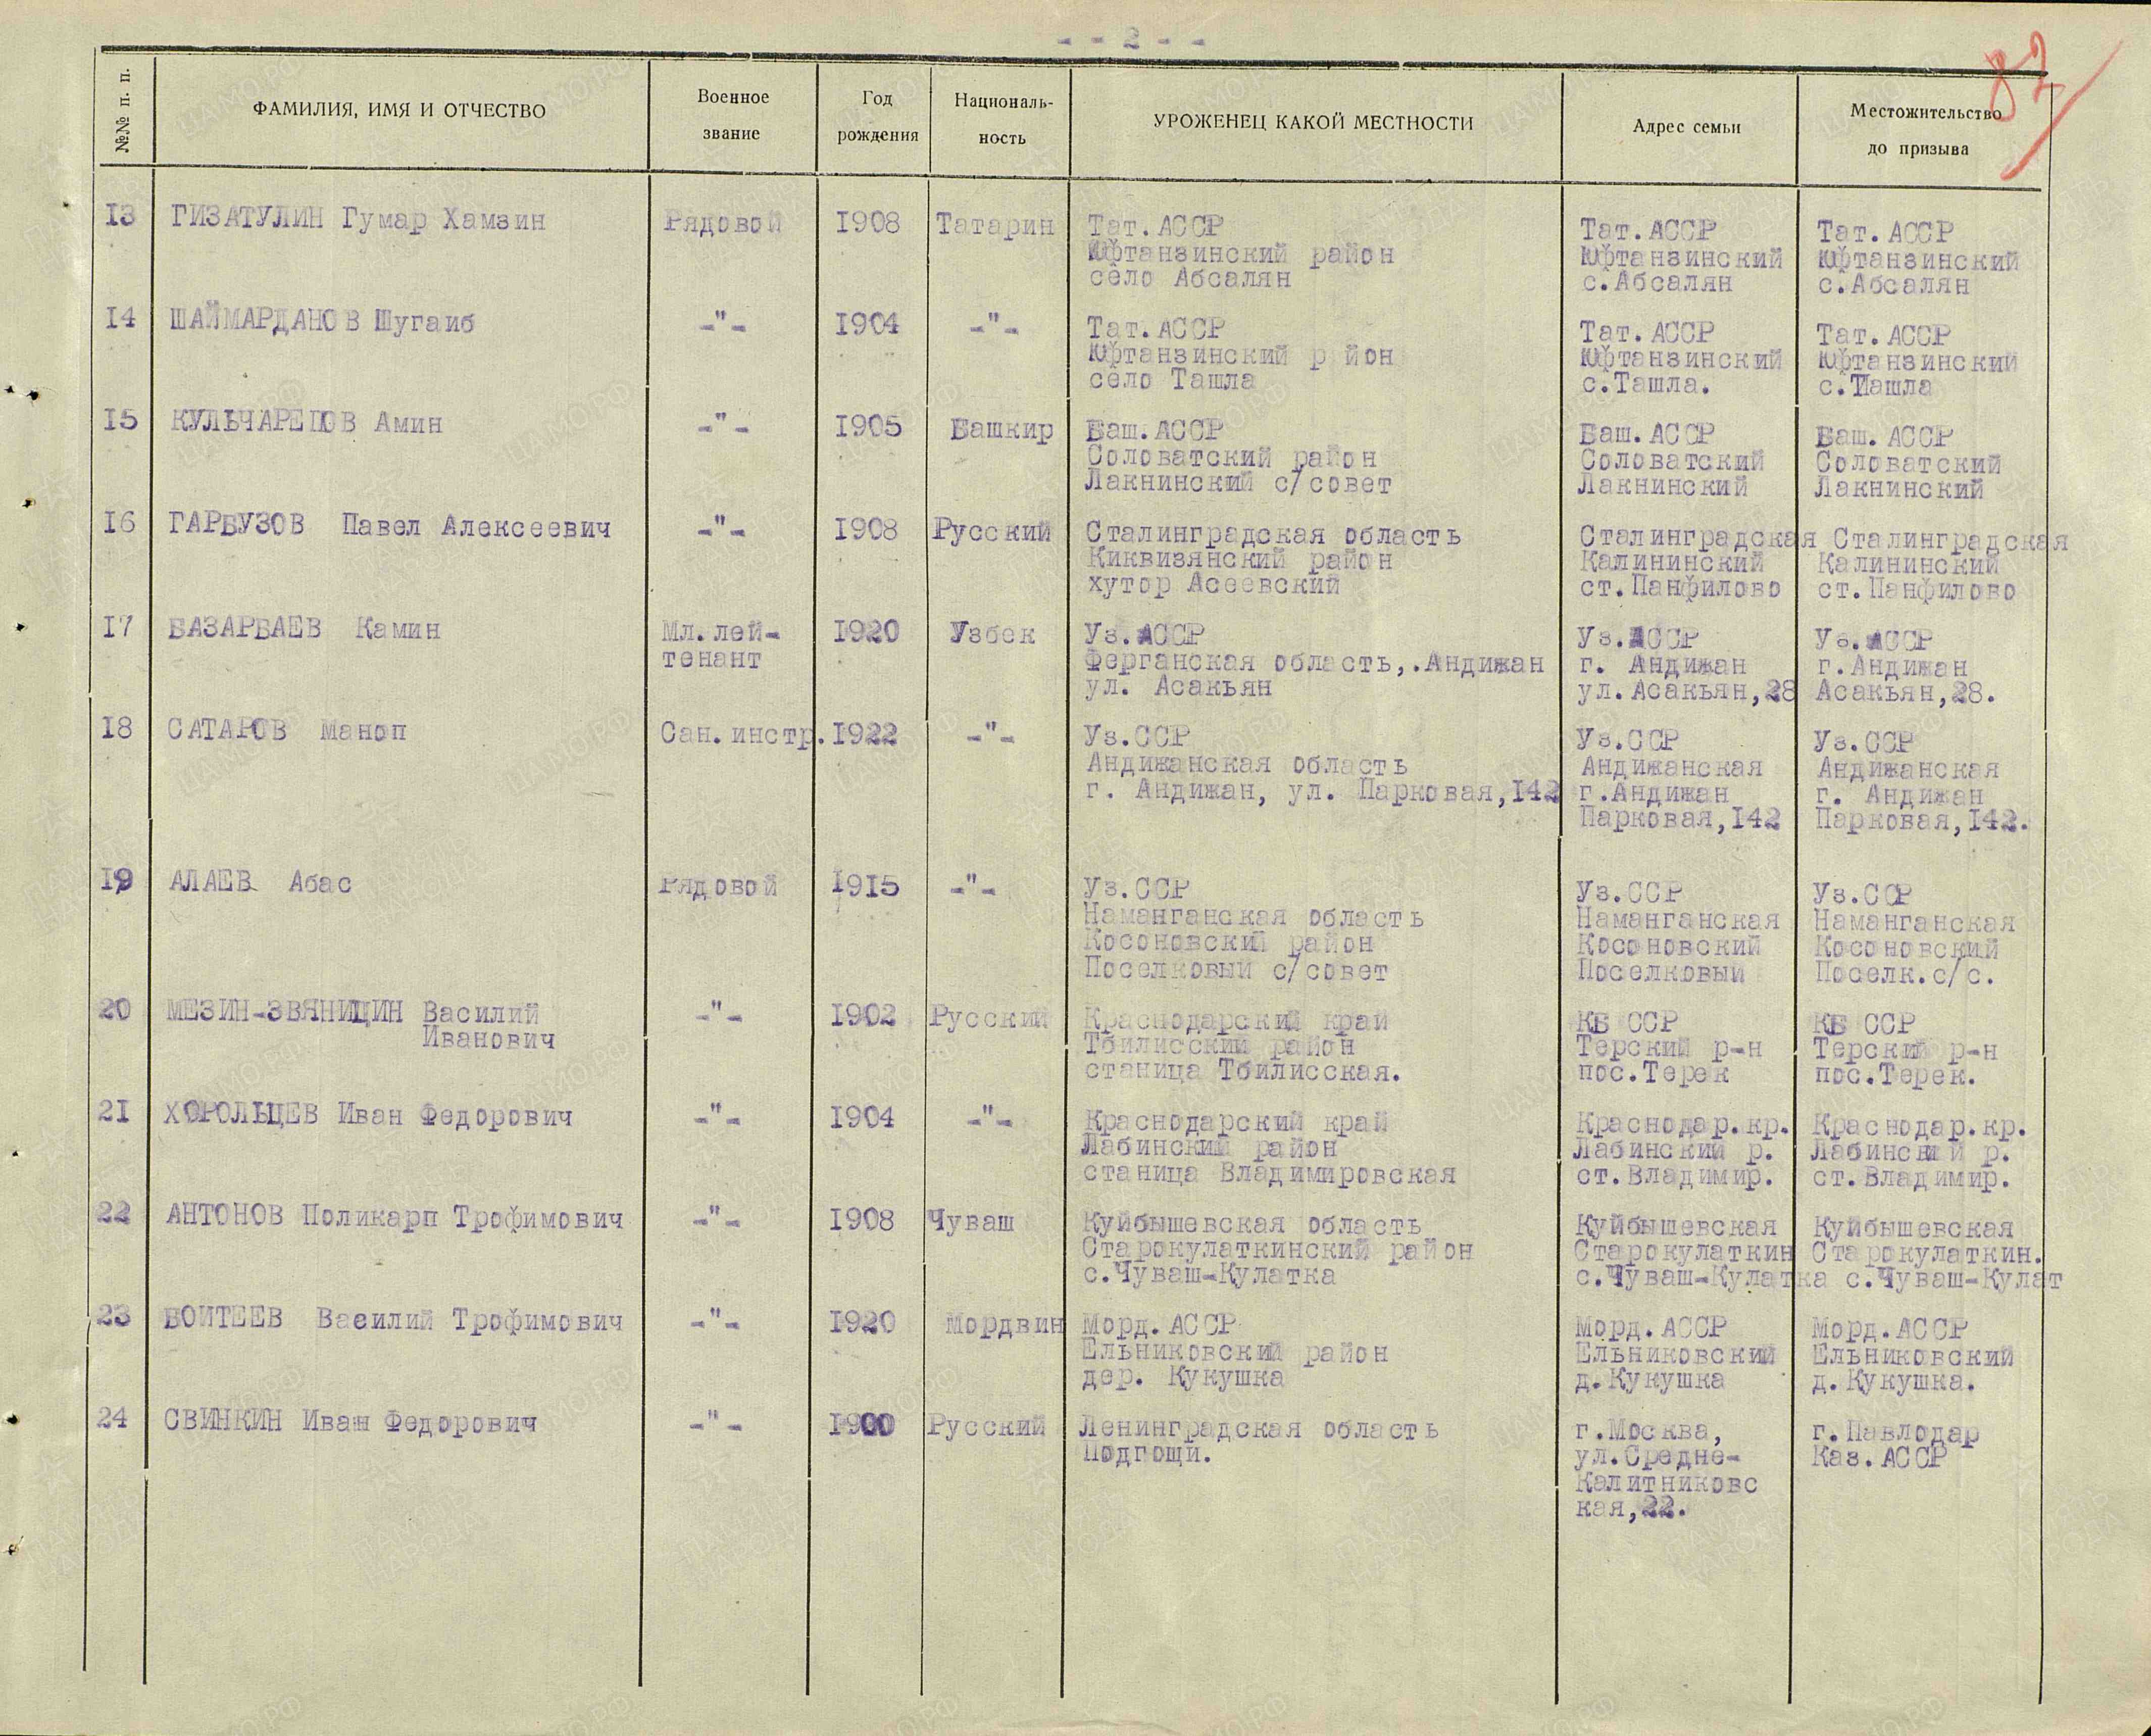 - - 2 - -
82
№№ п. п.
ФАМИЛИЯ, ИМЯ И ОТЧЕСТВО
Военное звание
Год рождения
Националь-ность
УРОЖЕНЕЦ КАКОЙ МЕСТНОСТИ
Адрес семьи
Местожительство до призыва
13 ГИЗАТУЛИН Гумар Хамзин Рядовой 1908 Татарин Тат.АССР Тат.АССР Тат.АССР
Юфтанзинский район Юфтанзинский Юфтанзинский
село Абсалян с.Абсалян с.Абсалян
14 ШАЙМАРДАНОВ Шугаиб -"- 1904 -"- Тат.АССР Тат.АССР Тат.АССР
Юфтанзинский р йон Юфтанзинский Юфтанзинский
село Ташла с.Ташла. с.Ташла
15 КУЛЬЧАРЕПОВ Амин -"- 1905 Башкир Баш.АССР Баш.АССР Баш.АССР
Соловатский район Соловатский Соловатский
Лакнинский с/совет Лакнинский Лакнинский
16 ГАРБУЗОВ Павел Алексеевич -"- 1908 Русский Сталинградская область Сталинградская Сталинградская
Киквизянский район Калининский Калининский
хутор Асеевский ст.Панфилово ст.Панфилово
17 БАЗАРБАЕВ Камин Мл.лей- 1920 Узбек Уз.АССР Уз.АССР Уз.АССР
тенант Ферганская область,.Андижан г. Андижан г.Андижан
ул. Асакьян ул.Асакьян,28 Асакьян,28.
18 САТАРОВ Маноп Сан.инстр. 1922 -"- Уз.ССР Уз.ССР Уз.ССР
Андижанская область Андижанская Андижанская
г. Андижан, ул. Парковая,142 г.Андижан г. Андижан
Парковая,142 Парковая,142.
19 АЛАЕВ Абас Рядовой 1915 -"- Уз.ССР Уз.ССР Уз.ССР
Наманганская область Наманганская Наманганская
Косоновский район Косоновский Косоновский
Поселковый с/совет Поселковый Поселк.с/с.
20 МЕЗИН-ЗВЯНИЦИН Василий -"- 1902 Русский Краснодарский край КБ ССР КБ ССР
Иванович Тбилисский район Терский р-н Терский р-н
станица Тбилисская. пос.Терек пос.Терек.
21 ХОРОЛЬЦЕВ Иван Федорович -"- 1904 -"- Краснодарский край Краснодар.кр. Краснодар.кр.
Лабинский район Лабинский р. Лабинский р.
станица Владимировская ст.Владимир. ст.Владимир.
22 АНТОНОВ Поликарп Трофимович -"- 1908 Чуваш Куйбышевская область Куйбышевская Куйбышевская
Старокулаткинский район Старокулаткин Старокулаткин.
с.Чуваш-Кулатка с.Чуваш-Кулатка с.Чуваш-Кулат
23 БОИТЕЕВ Василий Трофимович -"- 1920 Мордвин Морд.АССР Морд.АССР Морд.АССР
Ельниковский район Ельниковский Ельниковский
дер. Кукушка д.Кукушка д.Кукушка.
24 СВИНКИН Иван Федорович -"- 1900 Русский Ленинградская область г.Москва, г.Павлодар
Подгощи. ул.Средне- Каз.АССР
Калитниковс
кая,22.